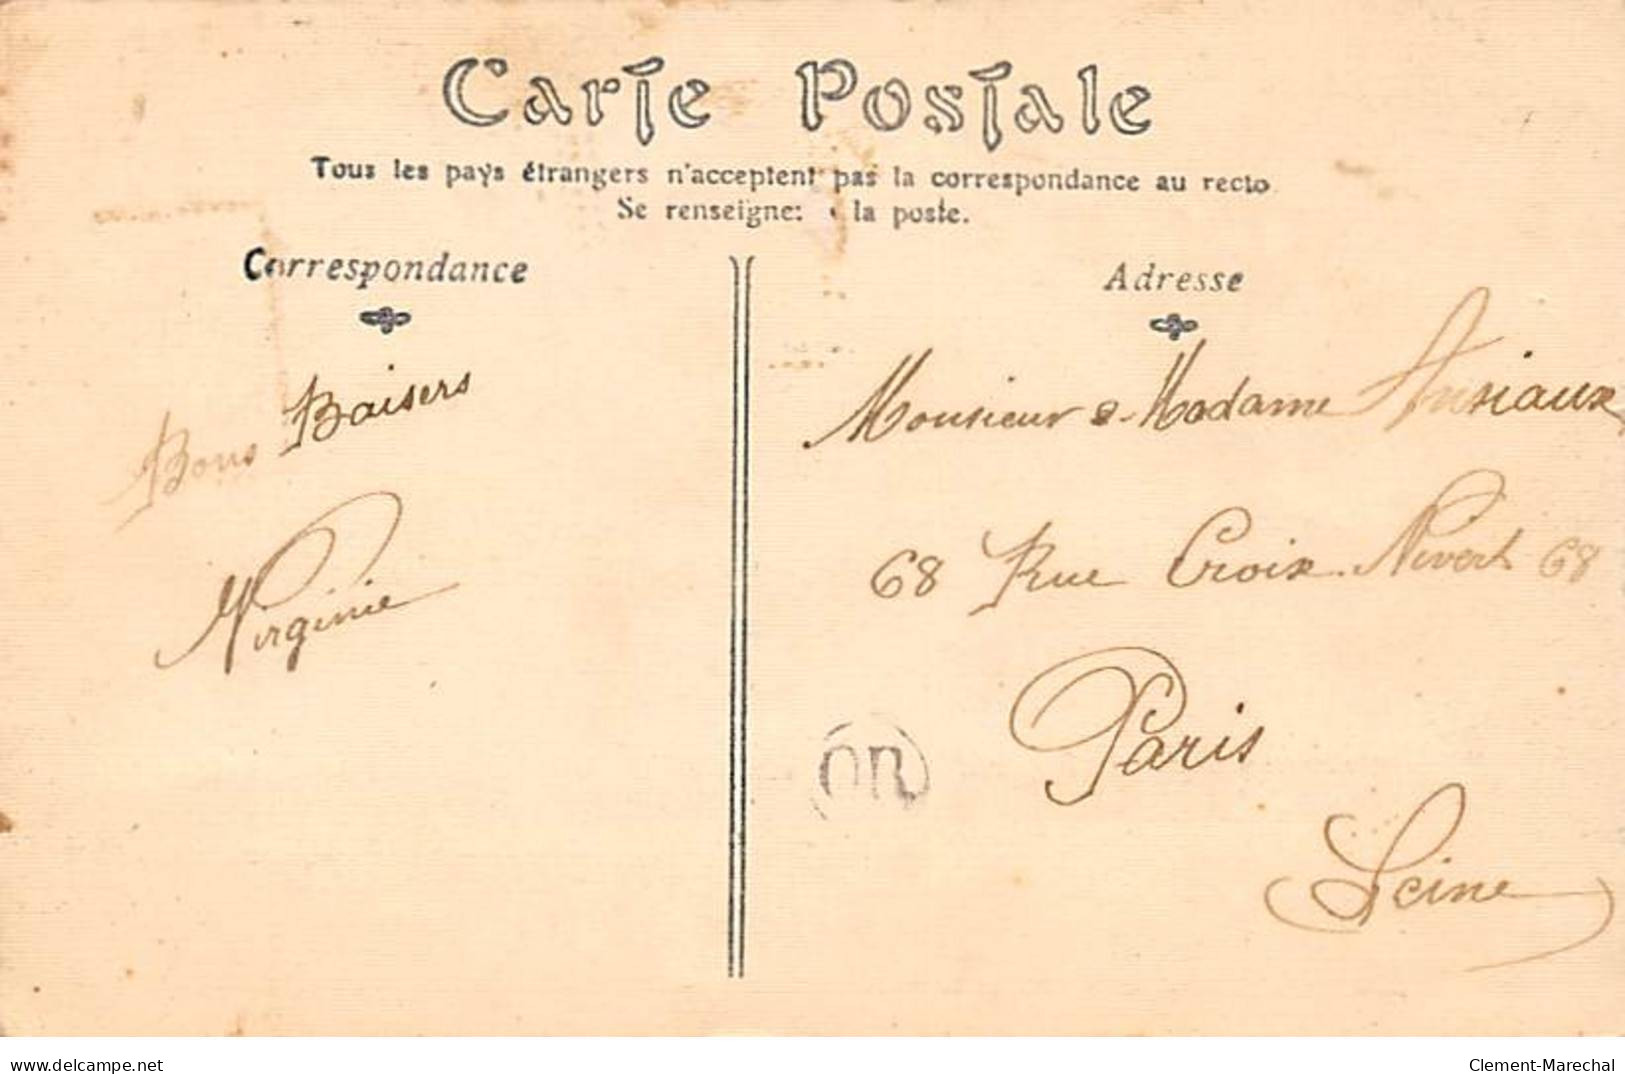 Carte Postale
Tous les pays étrangers n'acceptent pas la correspondance au recto
Se renseigner à la poste.
Correspondance
Bons Baisers
Virginie
Adresse
Monsieur & Madame Ansiaux
68 Rue Croix Nivert 68
Paris
Seine
OR
www.delcampe.net
Clement-Marechal